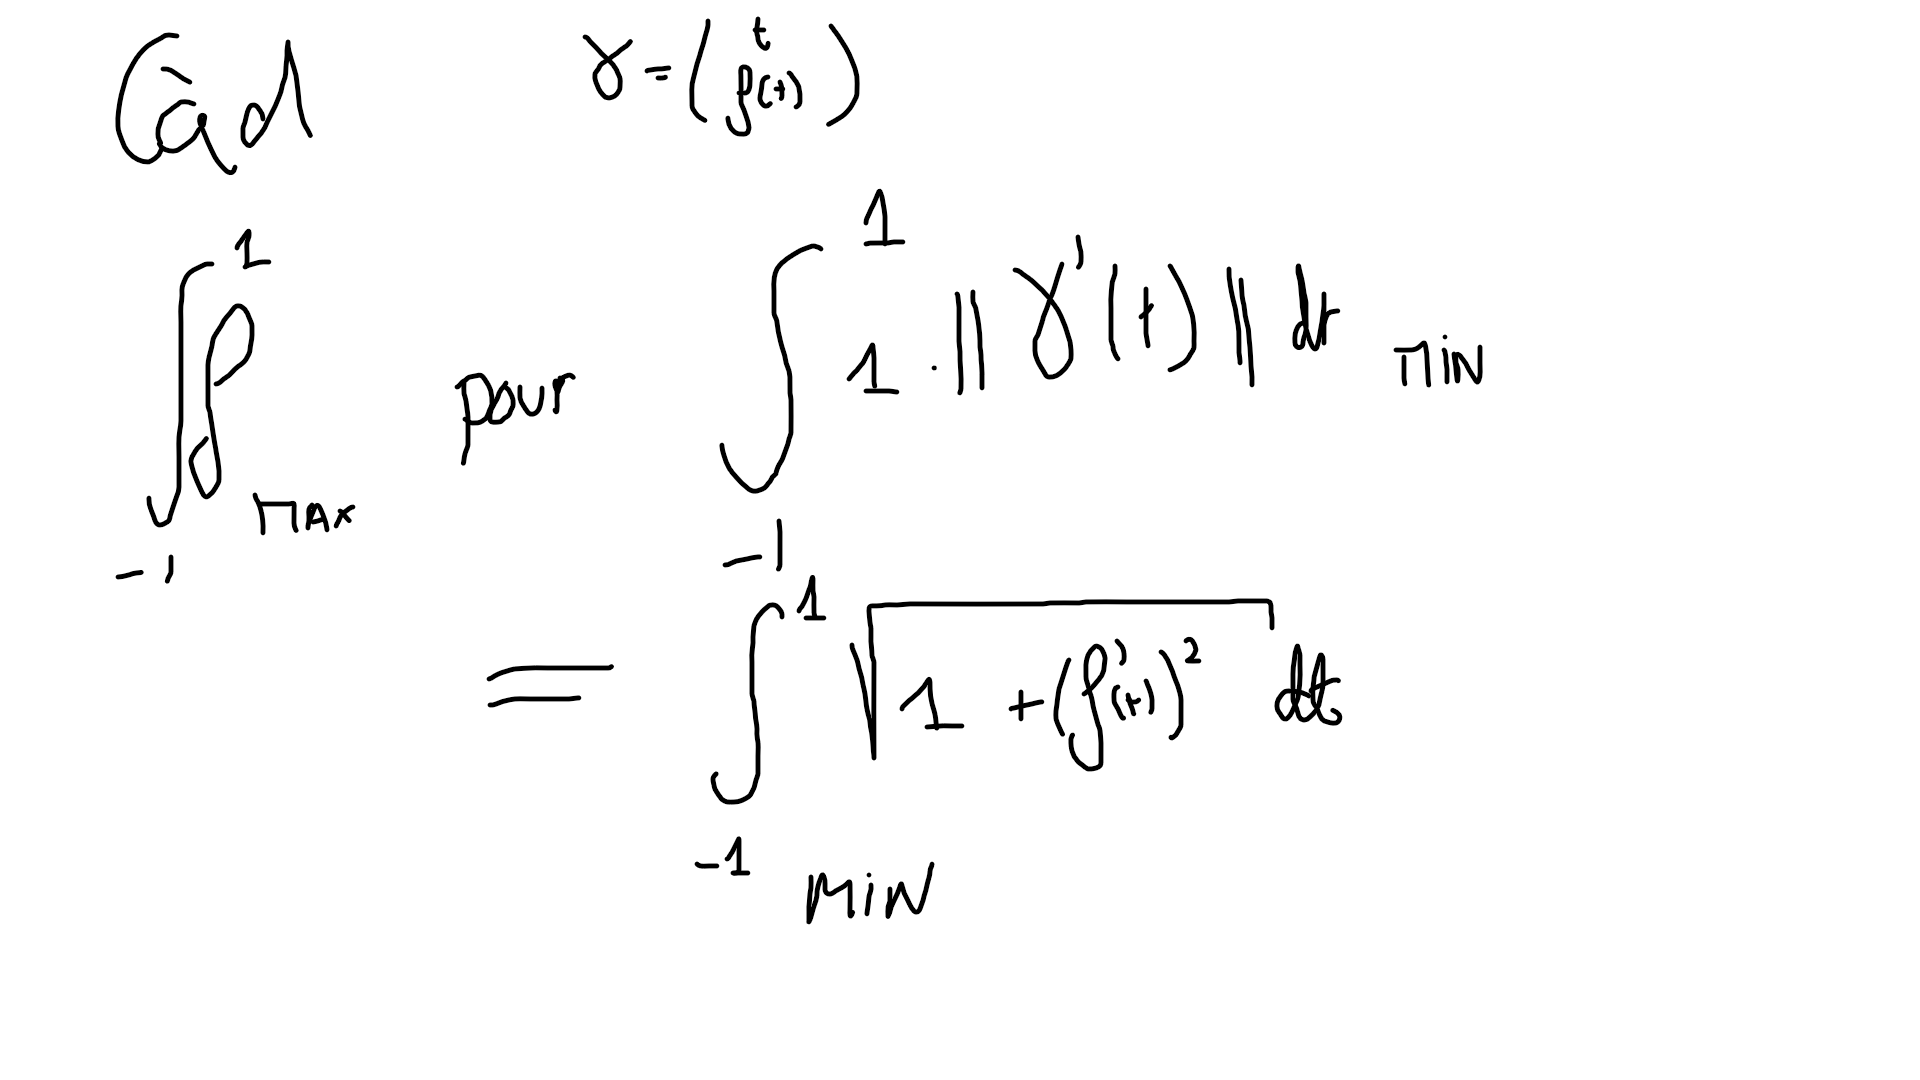 Càd γ = ( t f(t) )
∫_{-1}^{1} f MAX pour ∫_{-1}^{1} 1 . || γ'(t) || dt MIN
= ∫_{-1}^{1} √(1 + (f'(t))²) dt
MIN